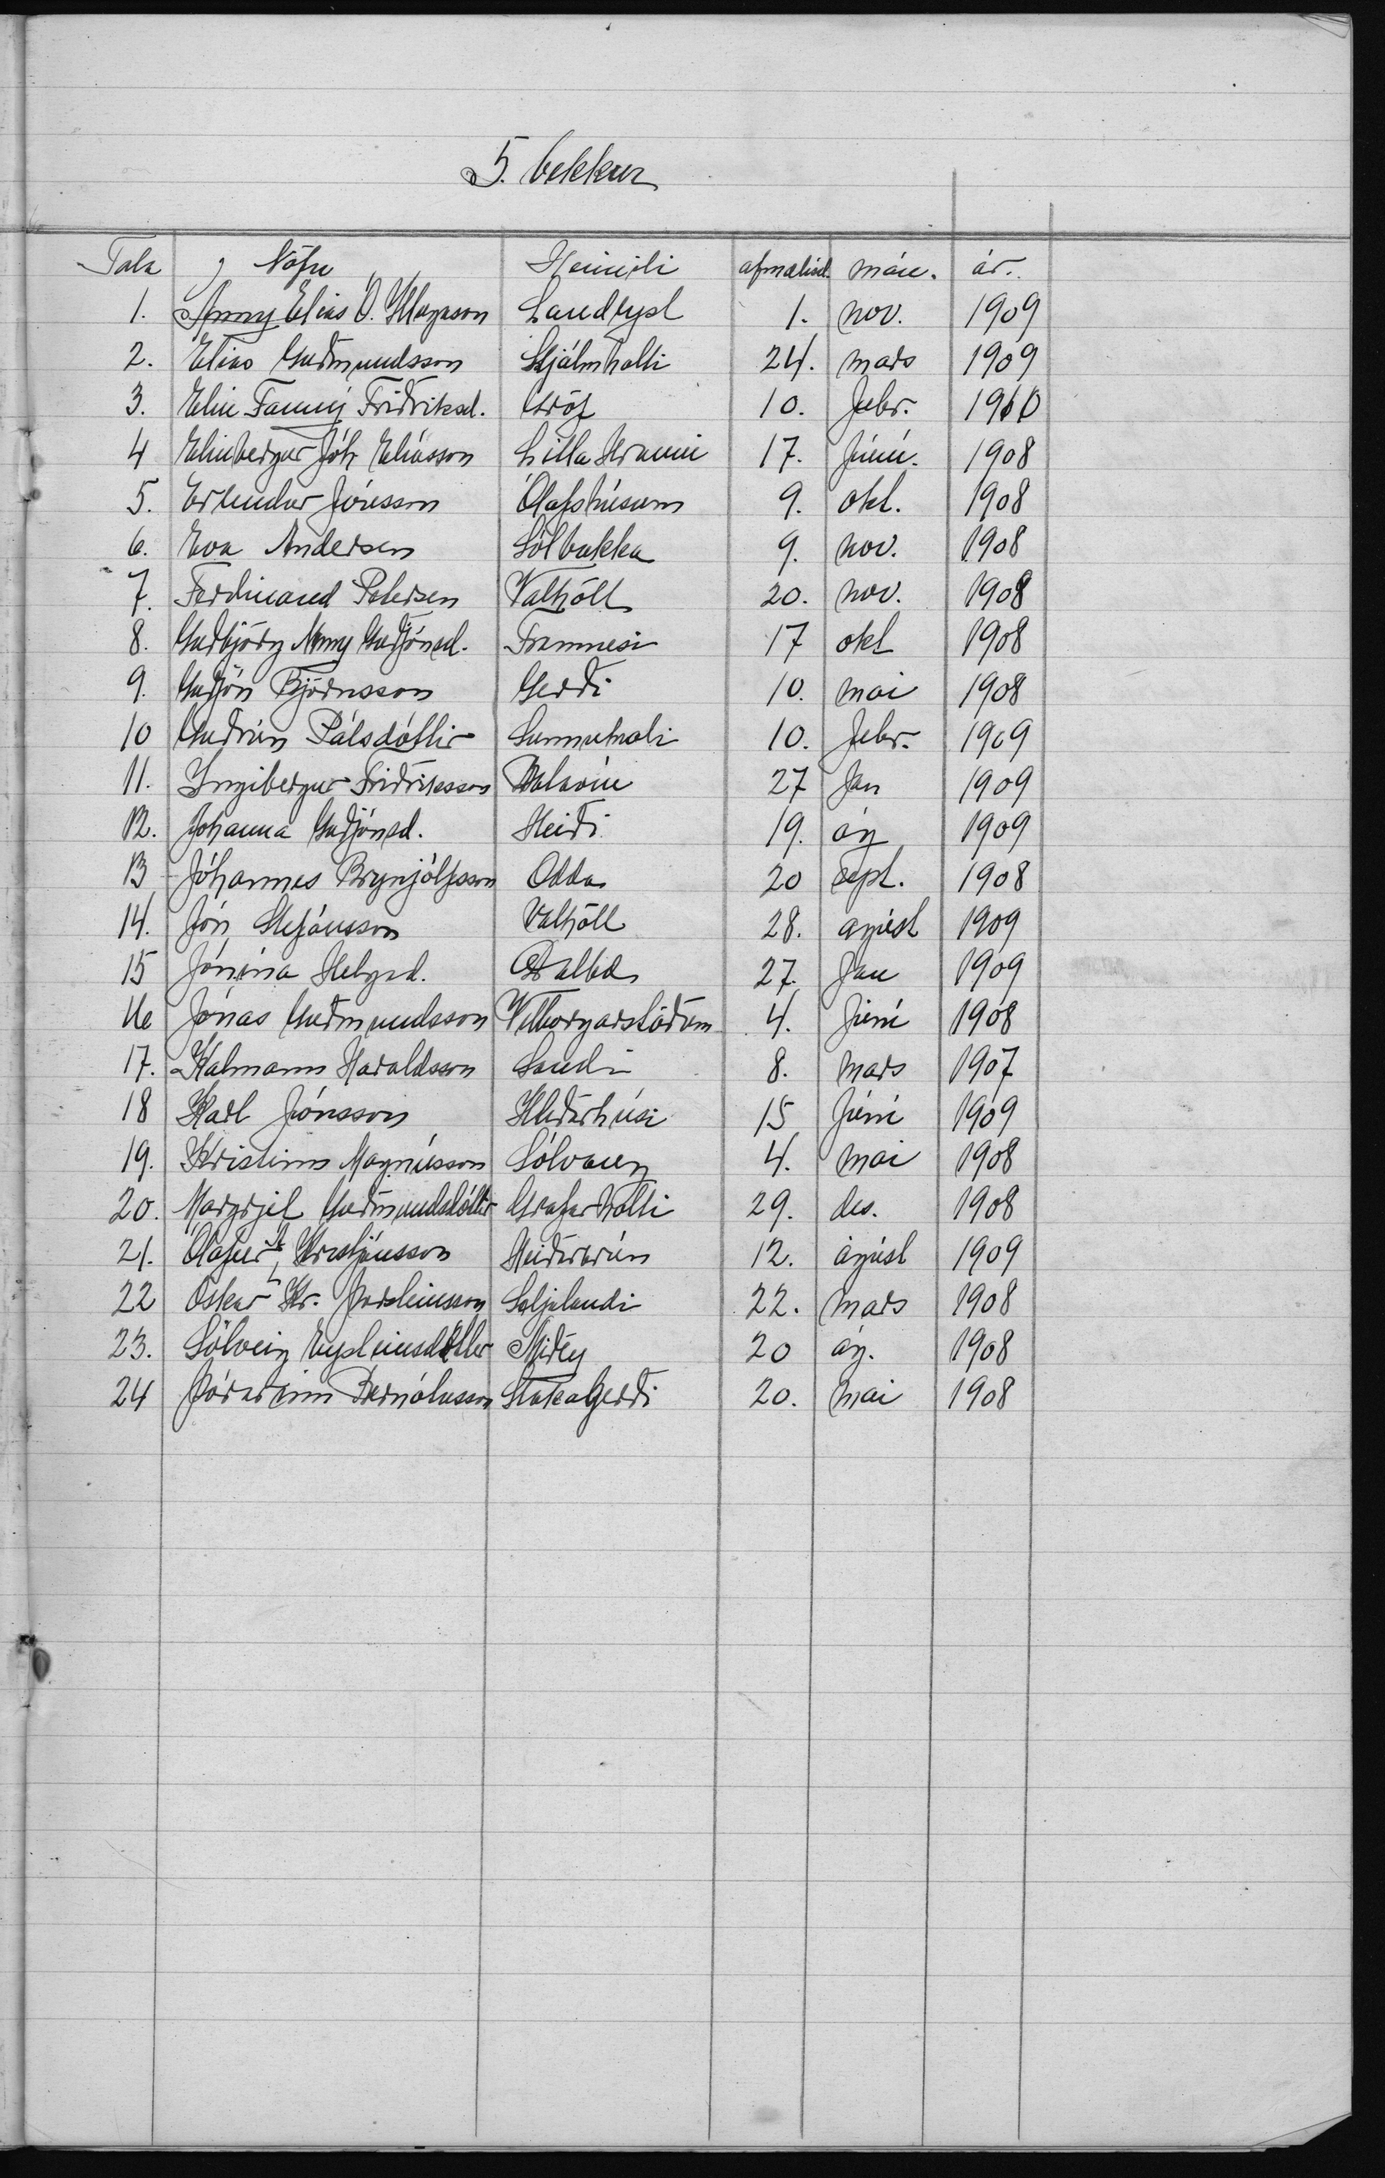 5. bekkur
Tala Nöfn Heimili afmælisd. mán. ár.
1. Anny Elías Ó. 1. nov. 1909
2. Elías Guðmundsson Hjálmholti 24. mars 1909
3. Elín Fanný Friðriksd. Gröf 10. febr. 1910
4 Elínbergur Jóh Elíasson Litla Hrauni 17. júní. 1908
5. Erlendur Jónsson Ólafshúsum 9. okt. 1908
6. Eva Andersen Sólbakka 9. nov. 1908
7. Ferdinand Petersen Valhöll 20. nov. 1908
8. Guðbjörg Anny Guðjónsd. Framnesi 17 okt 1908
9. Guðjón Björnsson Gerði 10. mai 1908
10 Guðrún Pálsdóttir Sunnuhvoli 10. febr. 1909
11. Ingibergur Friðriksson Batavíu 27 Jan 1909
12. Jóhanna Guðjónsd. Heiði 19. ág 1909
13 Jóhannes Brynjólfsson Odda 20 sept. 1908
14. Jón Stefánsson Valhöll 28. agúst 1909
15 Jónína Helgad. Dalbæ 27. Jan 1909
16 Jónas Guðmundsson Vilborgarstöðum 4. Júní 1908
17. Kalmann Haraldsson Sandi 8. mars 1907
18 Karl Jónsson Hliðarhúsi 15 Júní 1909
19. Kristinn Magnússon Sólvang 4. mai 1908
20. Margrjet Guðmundsdóttir Grafarholti 29. des. 1908
21. Ólafur A Kristjánsson Heiðarbrún 12. ágúst 1909
22 Óskar Kr. Þorsteinsson Seljalandi 22. mars 1908
23. Sólveig Eysteinsdóttir Miðey 20 ág. 1908
24 Þórarinn Bernótusson Stakagerði 20. mai 1908